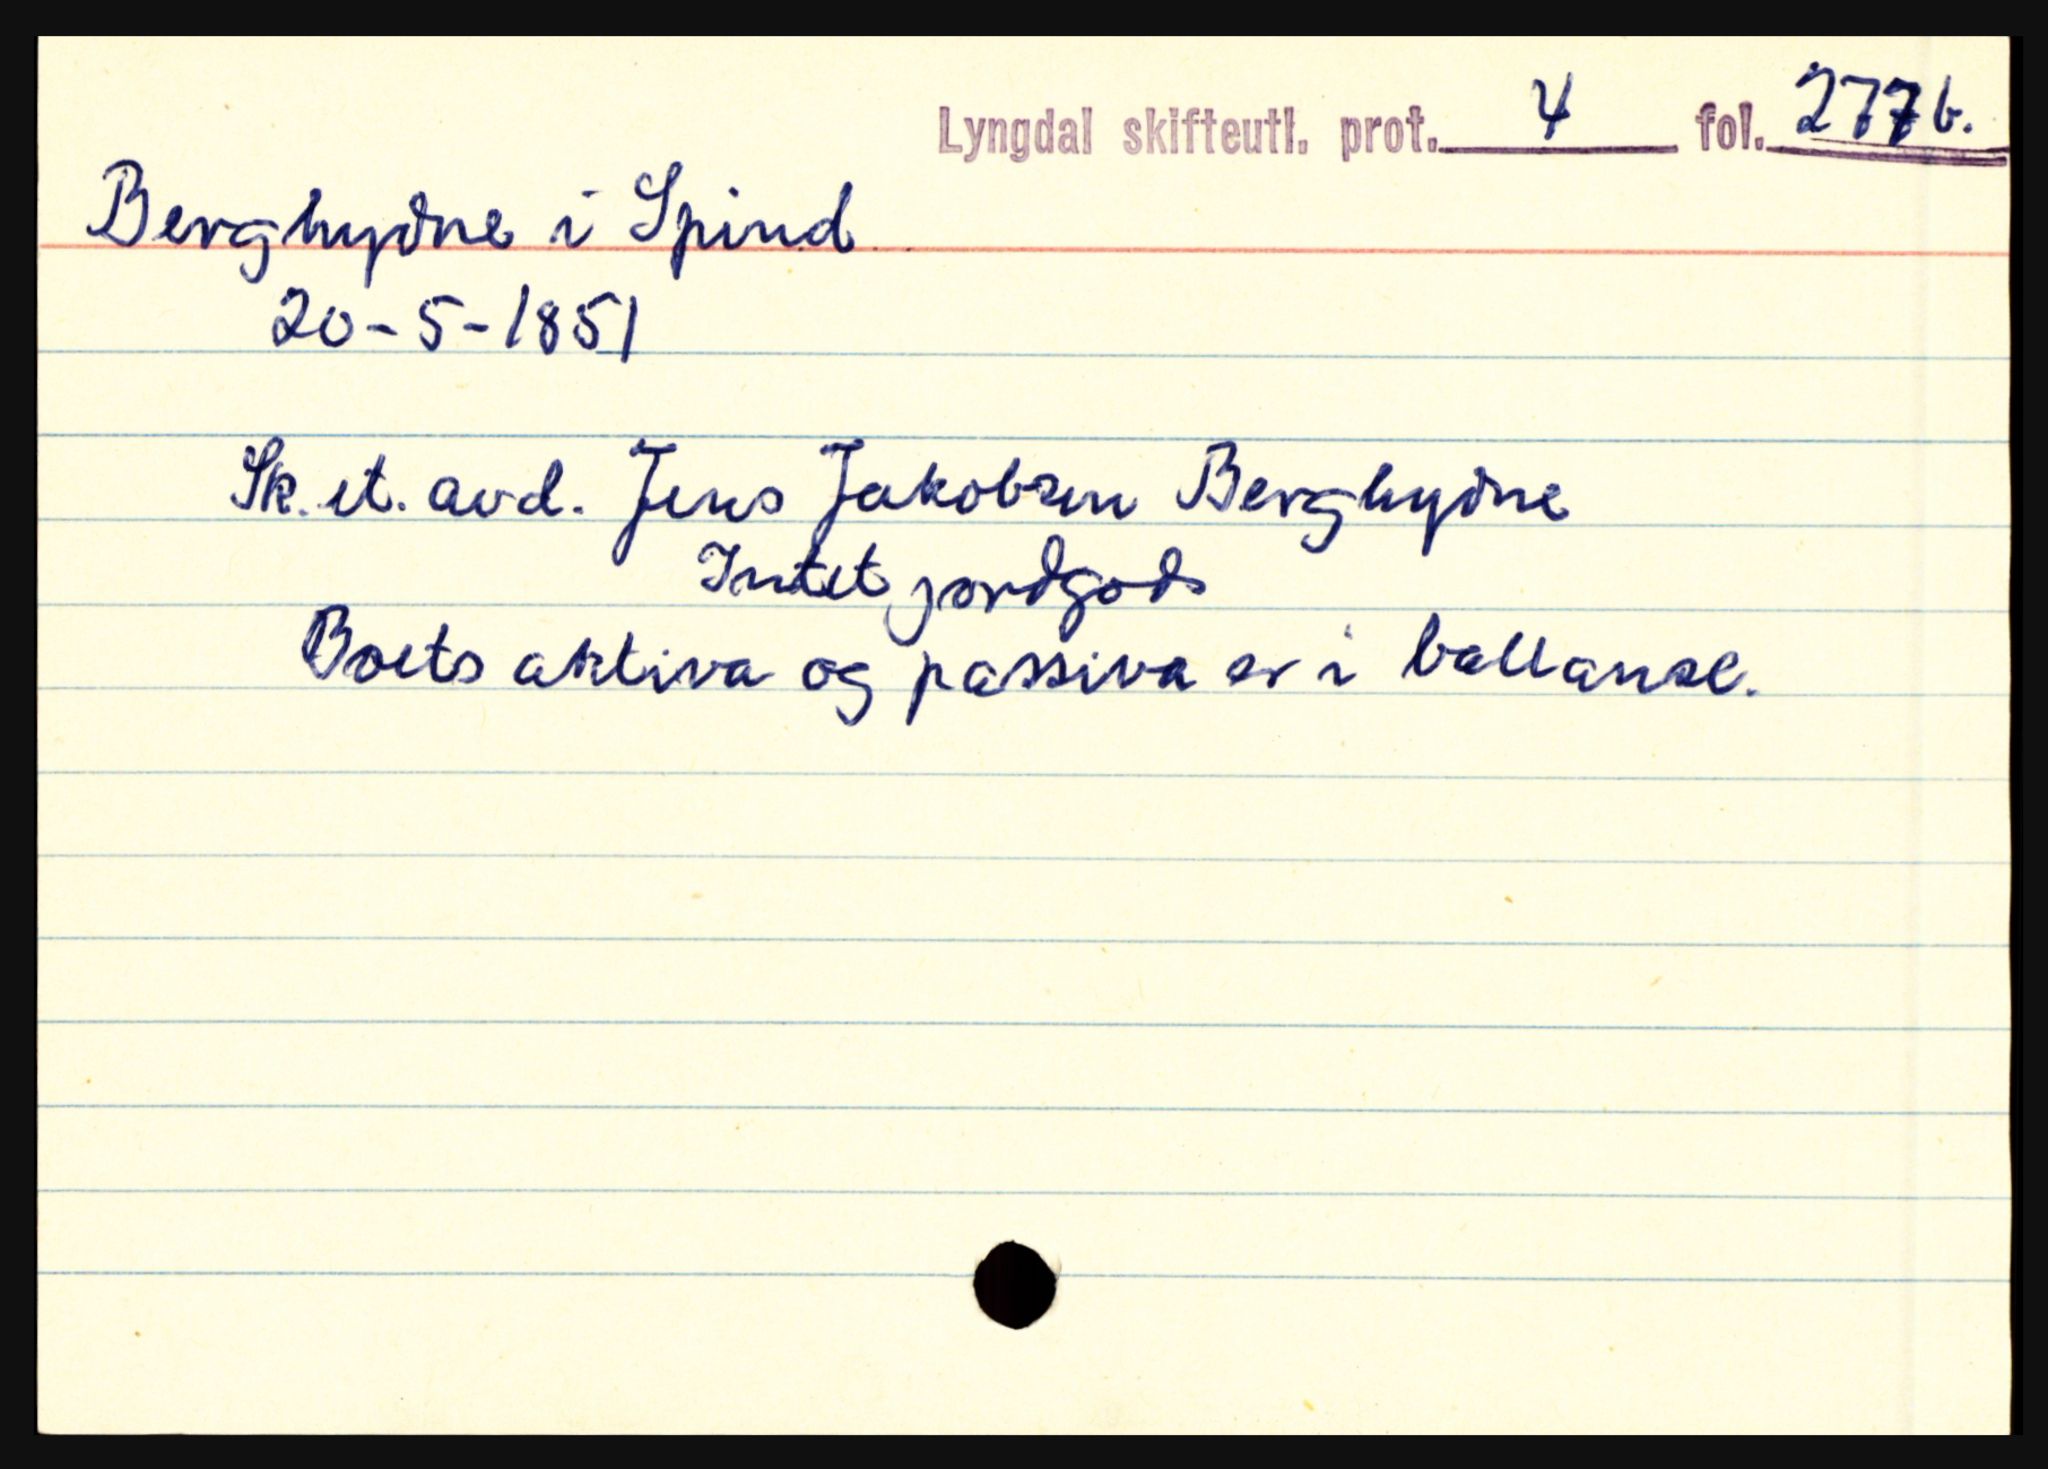 Lyngdal skifteutl. prot. 4 fol. 277b.
Berghydne i Spind
20-5-1851
Sk. et. avd. Jens Jakobsen Berghydne
Intet jordgods
Boets aktiva og passiva er i ballanse.